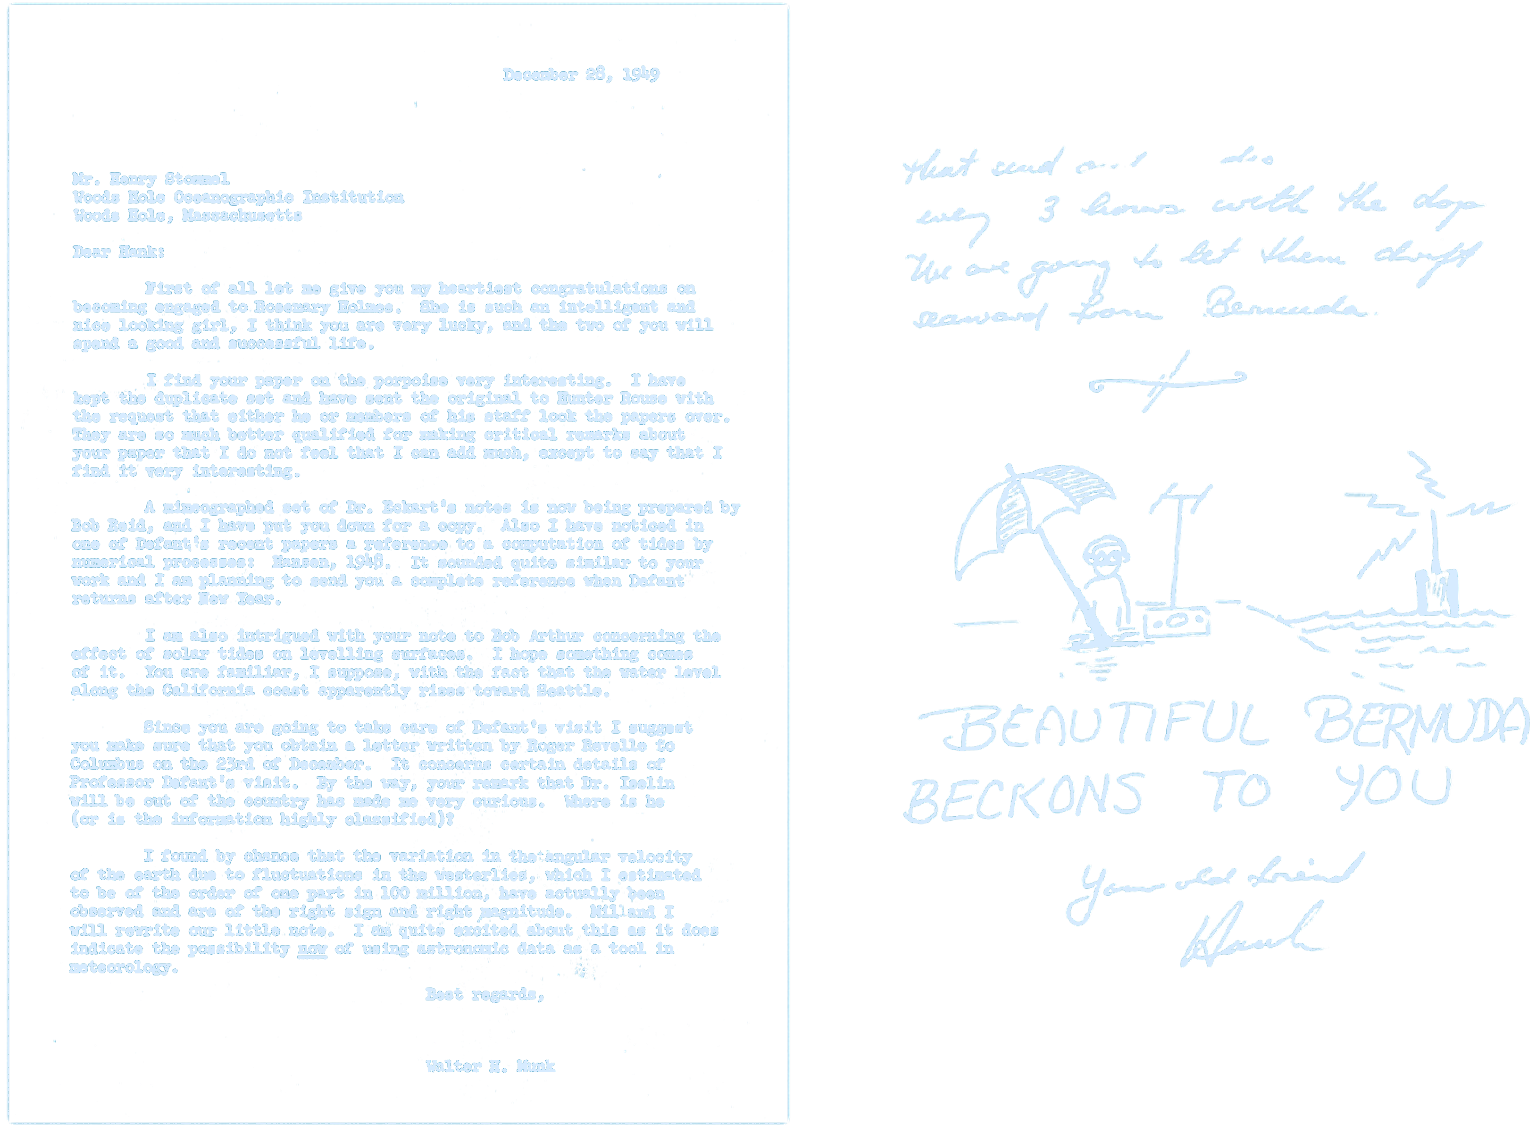 December 28, 1949
Mr. Henry Stommel
Woods Hole Oceanographic Institution
Woods Hole, Massachusetts
Dear Hank:
First of all let me give you my heartiest congratulations on
becoming engaged to Rosemary Holmes. She is such an intelligent and
nice looking girl, I think you are very lucky, and the two of you will
spend a good and successful life.
I find your paper on the porpoise very interesting. I have
kept the duplicate set and have sent the original to Hunter Rouse with
the request that either he or members of his staff look the papers over.
They are so much better qualified for making critical remarks about
your paper that I do not feel that I can add much, except to say that I
find it very interesting.
A mimeographed set of Dr. Eckart's notes is now being prepared by
Bob Reid, and I have put you down for a copy. Also I have noticed in
one of Defant's recent papers a reference to a computation of tides by
numerical processes: Hansen, 1948. It sounded quite similar to your
work and I am planning to send you a complete reference when Defant
returns after New Year.
I am also intrigued with your note to Bob Arthur concerning the
effect of solar tides on levelling surfaces. I hope something comes
of it. You are familiar, I suppose, with the fact that the water level
along the California coast apparently rises toward Seattle.
Since you are going to take care of Defant's visit I suggest
you make sure that you obtain a letter written by Roger Revelle to
Columbus on the 23rd of December. It concerns certain details of
Professor Defant's visit. By the way, your remark that Dr. Iselin
will be out of the country has made me very curious. Where is he
(or is the information highly classified)?
I found by chance that the variation in the angular velocity
of the earth due to fluctuations in the westerlies, which I estimated
to be of the order of one part in 100 million, have actually been
observed and are of the right sign and right magnitude. Mill and I
will rewrite our little note. I am quite excited about this as it does
indicate the possibility now of using astronomic data as a tool in
meteorology.
Best regards,
Walter H. Munk
that send
every 3 hours with the
We are going to let them drift
seaward from Bermuda.
BEAUTIFUL BERMUDA
BECKONS TO YOU
Your old friend
Hank